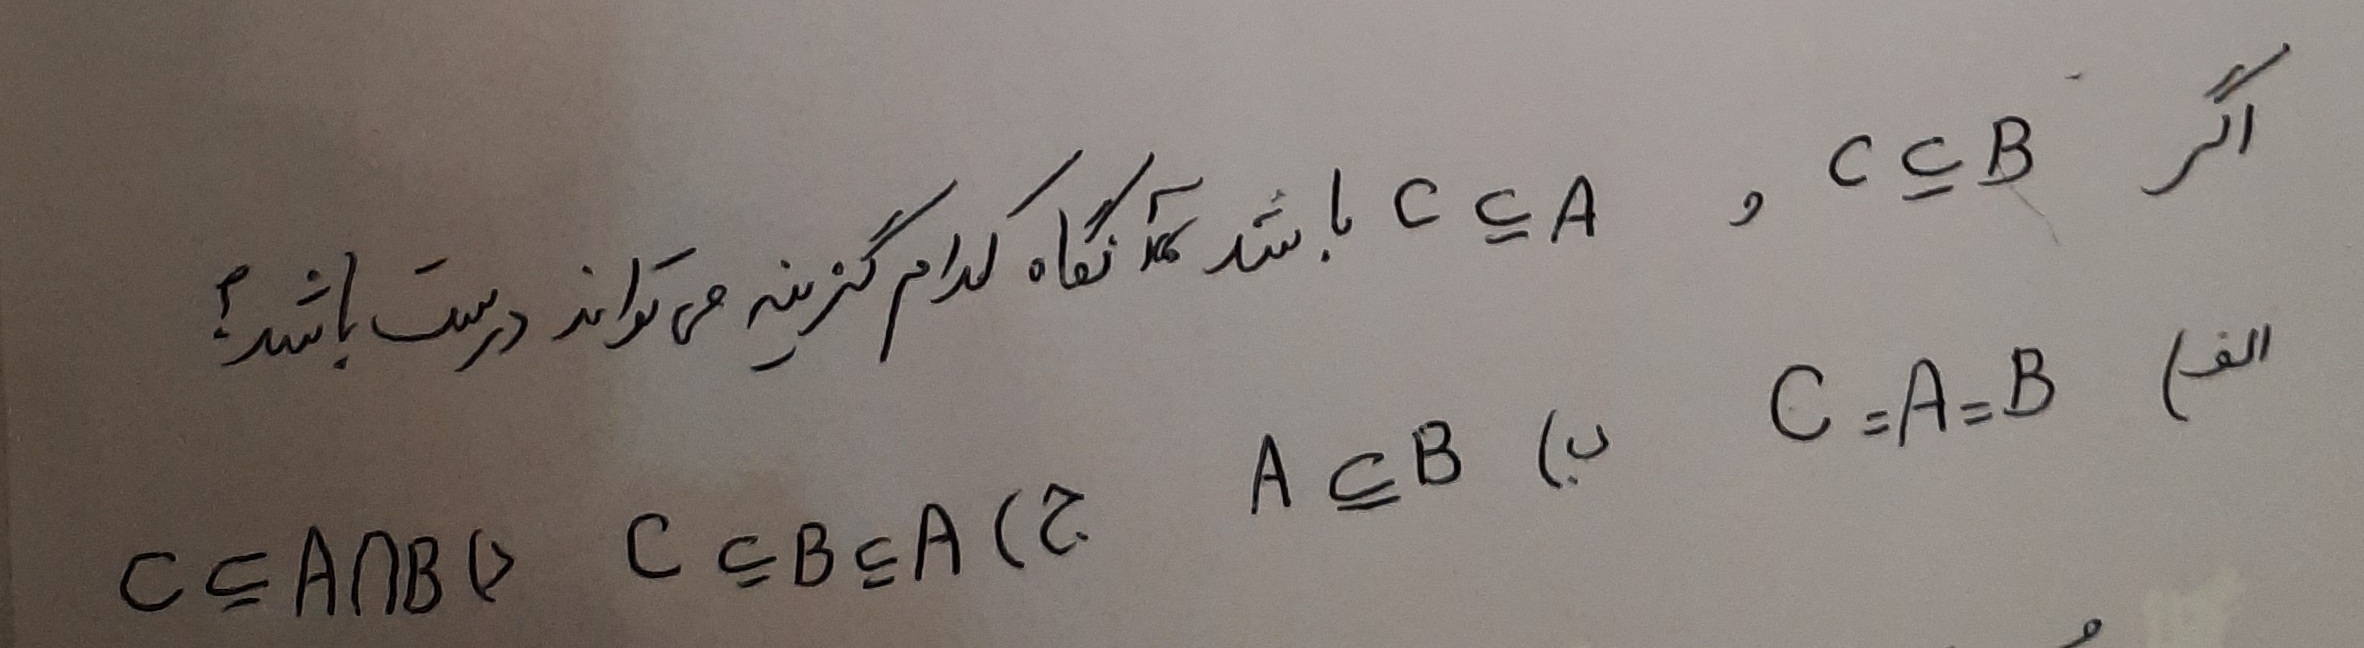 اگر C ⊆ B و C ⊆ A باشد آنگاه کدام گزینه می‌تواند درست باشد؟
الف) C = A = B ب) A ⊆ B ج) C ⊆ B ⊆ A د) C ⊆ A ∩ B